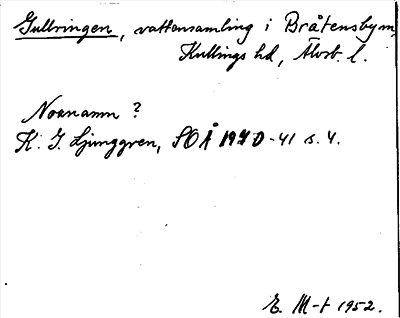 Gullringen, vattensamling i Bråtensby m,
Kullings hd, Älvsb. l.
Noanamn ?
K. G. Ljunggren, SOÅ 1940-41 s. 4.
E. M-t 1952.